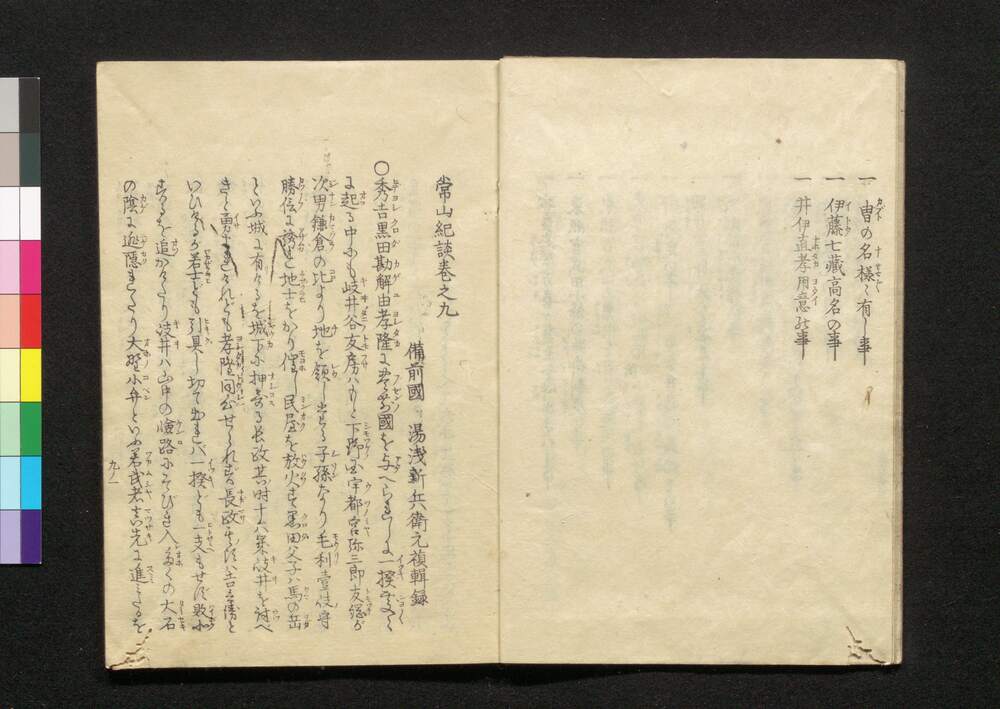 一 冑の名様〻有し事
一 伊藤七藏高名の事
一 井伊直孝用意の事
常山紀談卷之九
備前國 湯浅新兵衛元禎輯録
○秀吉黒田勘解由孝隆に豊前國を与へられしに一揆
に起る中にも岐井谷友房ハもと下野國宇都宮弥三郎友綱が
次男鎌倉の比より地を領し出る子孫なり毛利壹岐守
勝信に誘れ地士をかり催し民屋を放火す黒田父子ハ馬の岳
といふ城に有けるを城下に押寄る長政其時十八歳岐井を討べ
きと勇まれけれども孝隆同心せられず長政
いひけるが若士ども引具し切て出れバ一揆ども一支もせず敗北
するを追かけたり岐井ハ山中の嶮路にそびき入多くの大石
の陰に迯隠れたり大野小弁といふ若武者真先に進みたるを
九ノ一